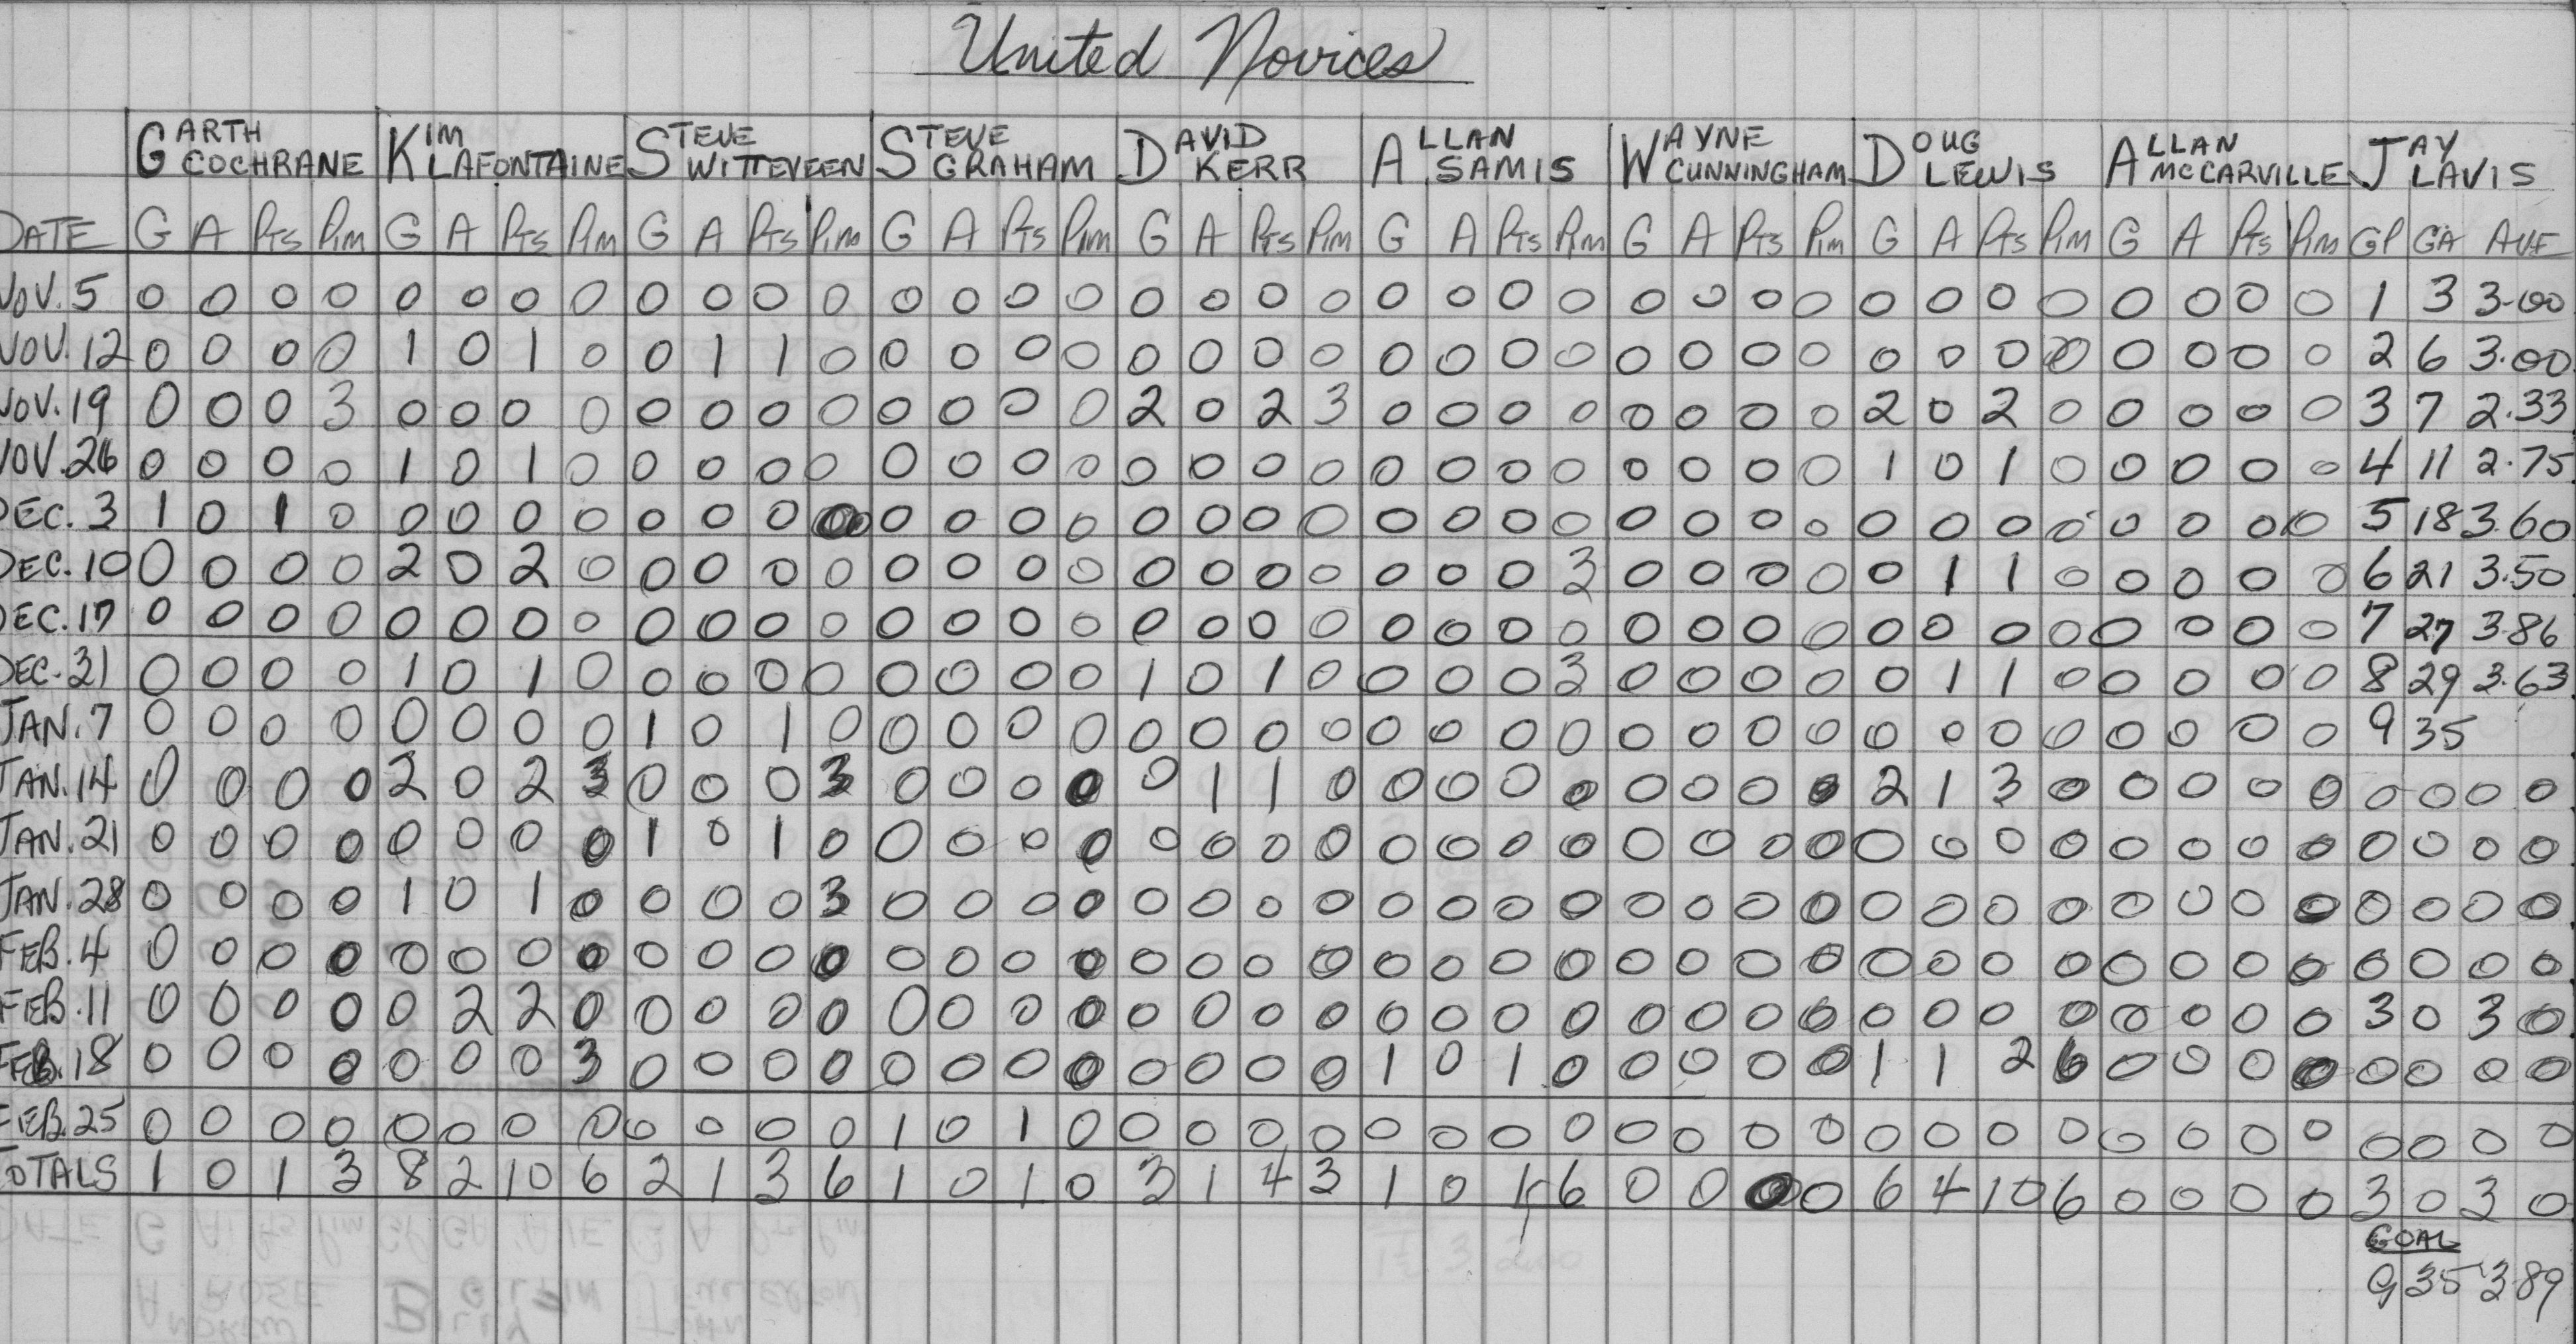 United Novices
GARTH COCHRANE KIM LAFONTAINE STEVE WITTEVEEN STEVE GRAHAM DAVID KERR ALLAN SAMIS WAYNE CUNNINGHAM DOUG LEWIS ALLAN MCCARVILLE JAY LAVIS
DATE G A Pts Pim G A Pts Pim G A Pts Pim G A Pts Pim G A Pts Pim G A Pts Pim G A Pts Pim G A Pts Pim G A Pts Pim GP GA AVE
NOV. 5 0 0 0 0 0 0 0 0 0 0 0 0 0 0 0 0 0 0 0 0 0 0 0 0 0 0 0 0 0 0 0 0 0 0 0 0 1 3 3.00
NOV. 12 0 0 0 0 1 0 1 0 0 1 1 0 0 0 0 0 0 0 0 0 0 0 0 0 0 0 0 0 0 0 0 0 0 0 0 0 2 6 3.00
NOV. 19 0 0 0 3 0 0 0 0 0 0 0 0 0 0 0 0 2 0 2 3 0 0 0 0 0 0 0 0 2 0 2 0 0 0 0 0 3 7 2.33
NOV. 26 0 0 0 0 1 0 1 0 0 0 0 0 0 0 0 0 0 0 0 0 0 0 0 0 0 0 0 0 1 0 1 0 0 0 0 0 4 11 2.75
DEC. 3 1 0 1 0 0 0 0 0 0 0 0 0 0 0 0 0 0 0 0 0 0 0 0 0 0 0 0 0 0 0 0 0 0 0 0 0 5 18 3.60
DEC. 10 0 0 0 0 2 0 2 0 0 0 0 0 0 0 0 0 0 0 0 0 0 0 0 3 0 0 0 0 0 1 1 0 0 0 0 0 6 21 3.50
DEC. 17 0 0 0 0 0 0 0 0 0 0 0 0 0 0 0 0 0 0 0 0 0 0 0 0 0 0 0 0 0 0 0 0 0 0 0 0 7 27 3.86
DEC. 31 0 0 0 0 1 0 1 0 0 0 0 0 0 0 0 0 1 0 1 0 0 0 0 3 0 0 0 0 0 1 1 0 0 0 0 0 8 29 3.63
JAN. 7 0 0 0 0 0 0 0 0 1 0 1 0 0 0 0 0 0 0 0 0 0 0 0 0 0 0 0 0 0 0 0 0 0 0 0 0 9 35
JAN. 14 0 0 0 0 2 0 2 3 0 0 0 3 0 0 0 0 0 1 1 0 0 0 0 0 0 0 0 0 2 1 3 0 0 0 0 0 0 0 0 0
JAN. 21 0 0 0 0 0 0 0 0 1 0 1 0 0 0 0 0 0 0 0 0 0 0 0 0 0 0 0 0 0 0 0 0 0 0 0 0 0 0 0 0
JAN. 28 0 0 0 0 1 0 1 0 0 0 0 3 0 0 0 0 0 0 0 0 0 0 0 0 0 0 0 0 0 0 0 0 0 0 0 0 0 0 0 0
FEB. 4 0 0 0 0 0 0 0 0 0 0 0 0 0 0 0 0 0 0 0 0 0 0 0 0 0 0 0 0 0 0 0 0 0 0 0 0 0 0 0 0
FEB. 11 0 0 0 0 0 2 2 0 0 0 0 0 0 0 0 0 0 0 0 0 0 0 0 0 0 0 0 0 0 0 0 0 0 0 0 0 3 0 3 0
FEB. 18 0 0 0 0 0 0 0 3 0 0 0 0 0 0 0 0 0 0 0 0 1 0 1 0 0 0 0 0 1 1 2 6 0 0 0 0 0 0 0 0
FEB. 25 0 0 0 0 0 0 0 0 0 0 0 0 1 0 1 0 0 0 0 0 0 0 0 0 0 0 0 0 0 0 0 0 0 0 0 0 0 0 0 0
TOTALS 1 0 1 3 8 2 10 6 2 1 3 6 1 0 1 0 3 1 4 3 1 0 1 6 0 0 0 0 6 4 10 6 0 0 0 0 3 0 3 0
GOAL
9 35 3 89